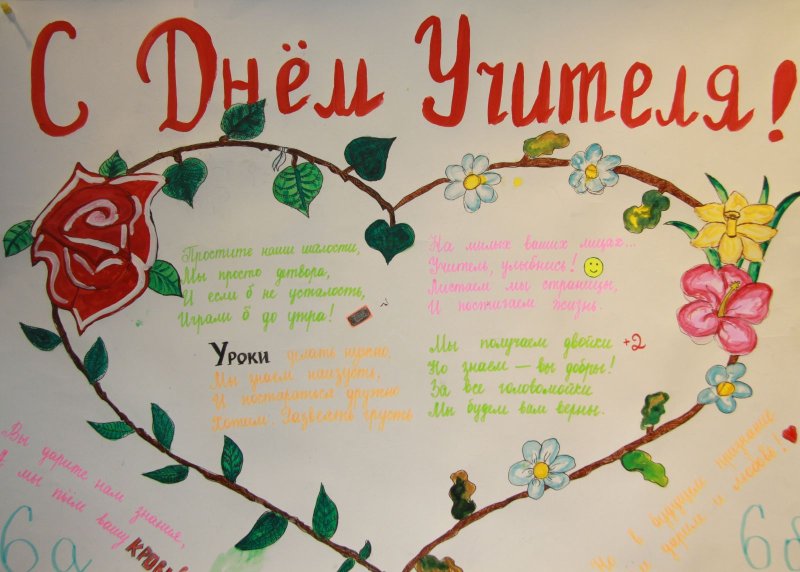 С Днём Учителя!
Простите наши шалости,
Мы просто детвора,
И если б не усталость,
Играли б до утра!
Уроки делать нужно,
Мы знаем наизусть.
И постараться дружно
Хотим. Развеять грусть
На милых ваших лицах...
Учитель, улыбнись!
Листаем мы страницы,
И постигаем жизнь.
Мы получаем двойки +2
Но знаем — вы добры!
За все головомойки
Мы будем вам верны.
Вы дарите нам знания,
А мы пьём вашу кровь
Но в будущем признание
дарим и любовь!
6а
6б